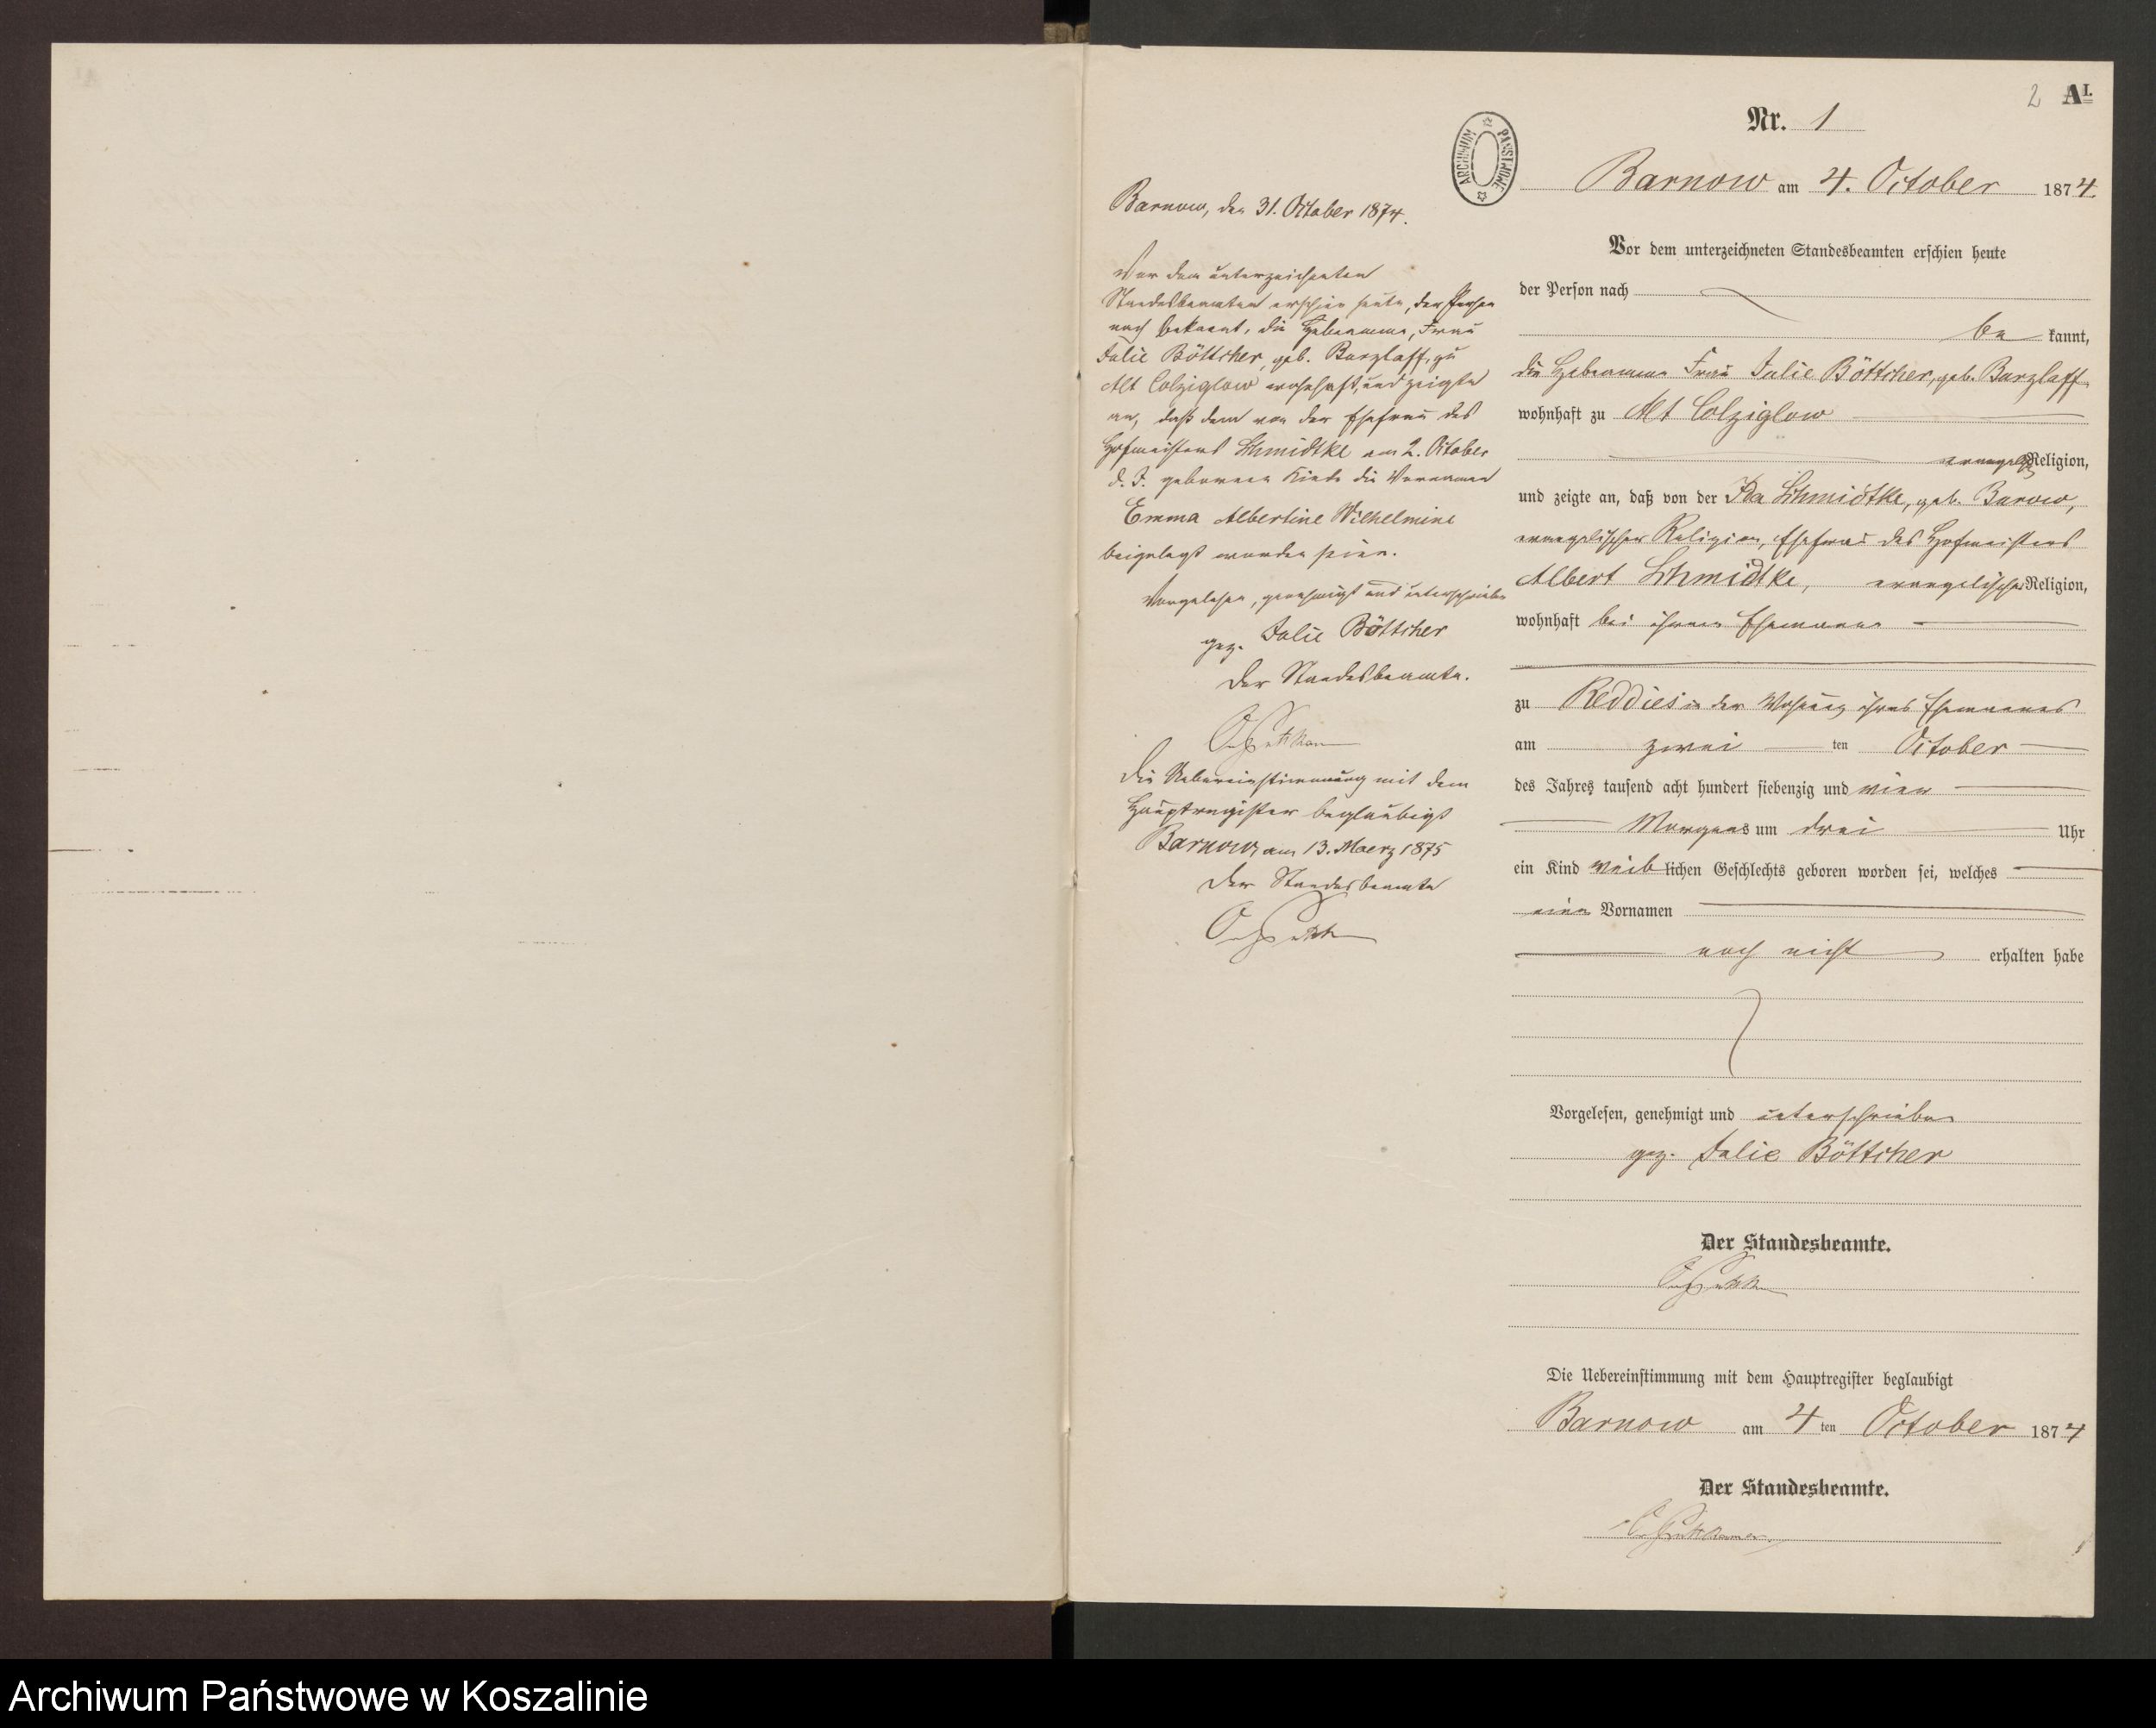 2 A I.
Nr. 1
ARCHIWUM PAŃSTWOWE
Barnow am 4. October 1874.
Vor dem unterzeichneten Standesbeamten erschien heute
der Person nach
be kannt,
die Hebeamme Frau Julie Böttcher, geb. Barzlaff,
wohnhaft zu Alt Colziglow
evangel. Religion,
und zeigte an, daß von der Ida Schmidtke, geb. Barow,
evangelischer Religion, Ehefrau des Hofmeisters
Albert Schmidtke, evangelischer Religion,
wohnhaft bei ihrem Ehemann
zu Reddies in der Wohnung ihres Ehemannes
am zwei ten October
des Jahres tausend acht hundert siebenzig und vier
Morgens um drei Uhr
ein Kind weib lichen Geschlechts geboren worden sei, welches
einen Vornamen
noch nicht erhalten habe
Vorgelesen, genehmigt und unterschrieben
gez. Julie Böttcher
Der Standesbeamte.
Die Uebereinstimmung mit dem Hauptregister beglaubigt
Barnow am 4 ten October 1874
Der Standesbeamte.
Barnow, den 31. October 1874.
Vor dem unterzeichneten
Standesbeamten erschien heute, der Person
nach bekannt, die Hebeamme, Frau
Julie Böttcher, geb. Barzlaff, zu
Alt Colziglow wohnhaft, und zeigte
an, daß dem von der Ehefrau des
Hofmeisters Schmidtke am 2. October
d. J. geborenen Kinde die Vornamen
Emma Albertine Wilhelmine
beigelegt worden seien.
Vorgelesen, genehmigt und unterschrieben
gez. Julie Böttcher
Der Standesbeamte.
Die Uebereinstimmung mit dem
Hauptregister beglaubigt
Barnow am 13. Maerz 1875
Der Standesbeamte
Archiwum Państwowe w Koszalinie